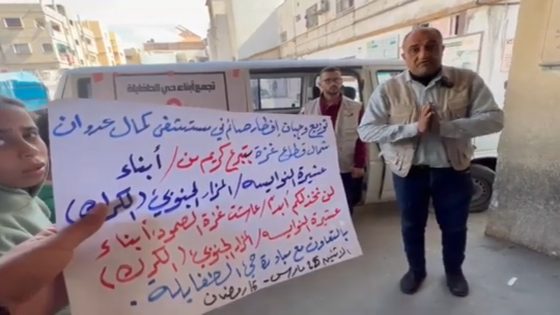 تجمع أبناء حي الطفايلة
توزيع وجبات إفطار صائم في مستشفى كمال عدوان
شمال قطاع غزة بتبرع كريم من / أبناء
عشيرة النوايسه / المزار الجنوبي (الكرك)
لن نخذلكم أبداً / عاشت غزة الصمود، أبناء
عشيرة النوايسه / المزار الجنوبي (الكرك)
بالتعاون مع مبادرة حي الطفايلة.
الاثنين 25 مارس - 15 رمضان